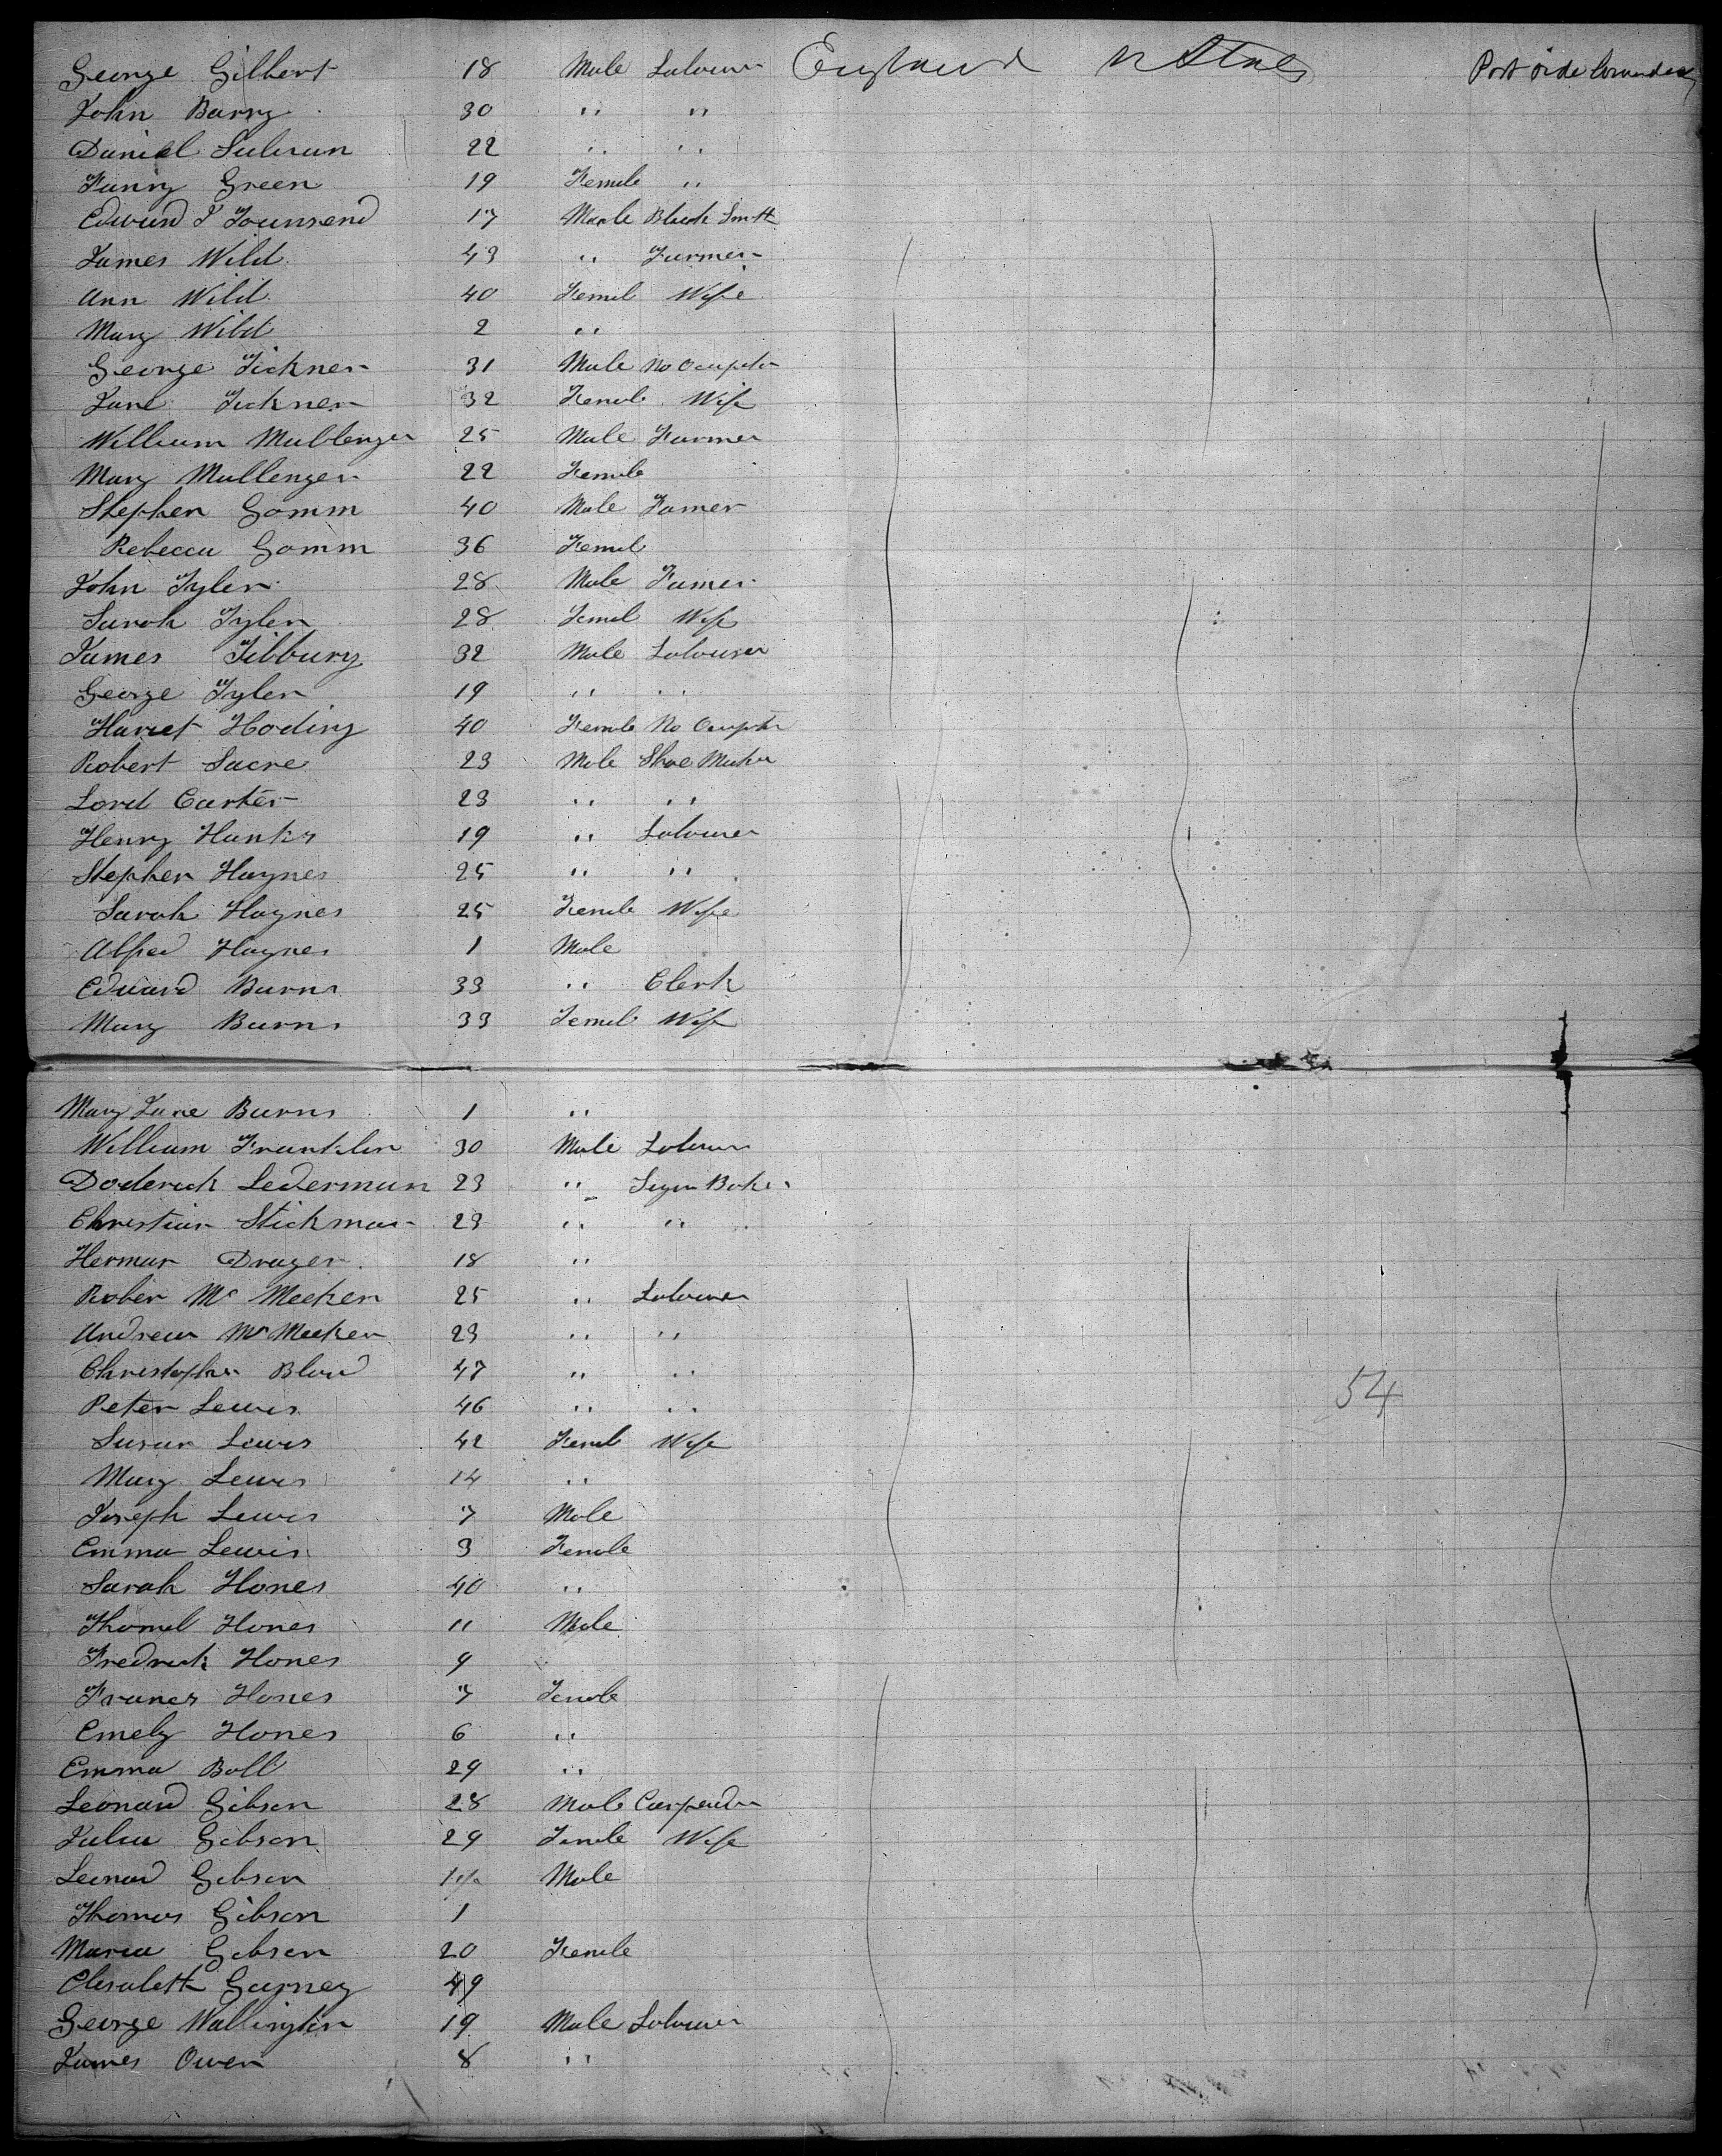 George Gilbert 18 Male Labourer England U States Port side
John Barry 30 " "
Daniel Sulivan 22 " "
Fanny Green 19 Female "
Edward J Tounsend 17 Male Black Smith
James Wild 43 " Farmer
Ann Wild 40 Femal Wife
Mary Wild 2 "
George Tickner 31 Male No Ocupation
Jane Tickner 32 Female Wife
William Mullenger 25 Male Farmer
Mary Mullenger 22 Female
Stephen Gomm 40 Male Farmer
Rebecca Gomm 36 Femal
John Tyler 28 Male Farmer
Sarah Tyler 28 Femal Wife
James Tibbury 32 Male Labourer
George Tyler 19 " "
Harriet Hoding 40 Female No Ocupation
Robert Sacre 23 Male Shoe Maker
Lord Carter 23 " "
Henry Hunks 19 " Labourer
Stephen Haynes 25 " "
Sarah Haynes 25 Female Wife
Alfred Haynes 1 Male
Edward Burns 33 " Clerk
Mary Burns 33 Femal Wife
Mary Jane Burns 1 "
William Franklin 30 Male Labourer
Doderick Lederman 23 "
Christian Stickman 23 " "
Herman Drager 18 "
Rober Mc Meeken 25 " Labourer
Andrew Mc Meeken 23 " "
Christopher 47 " "
Peter Lewis 46 " "
54
Susan Lewis 42 Femal Wife
Mary Lewis 14 "
Joseph Lewis 7 Male
Emma Lewis 3 Female
Sarah Hones 40 "
Thomas Hones 11 Male
Fredrick Hones 9
Frances Hones 7 Female
Emely Hones 6 "
Emma Ball 29 "
Leonard Gibson 28 Male Carpender
Julia Gibson 29 Female Wife
Leonard Gibson Male
Thomas Gibson 1
Maria Gibson 20 Female
Elesabeth Garney 49
George Wallington 19 Male Labourer
James Owen 8 "